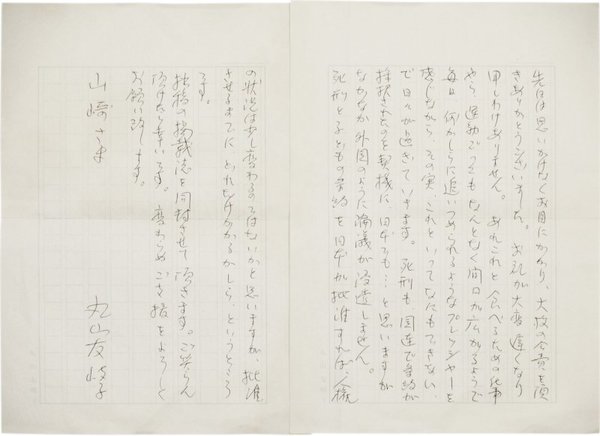 先日は思いがけなくお目にかかり、大枚の会費を頂
きありがとうございました。お礼が大変遅くなり
申しわけありません。あれこれと食べるための仕事
やら、運動でつともなんとなく間口が広がるようで
毎日、何かしらに追いつめられるようなプレッシャーを
感じながら、その実、これといってなにもできない、
で日々が過ぎていきます。死刑も国連で条約が
採択されたのを契機に日本でも…と思いますが
なかなか外国のように論議が浸透しません。
死刑と子どもの条約を日本が批准すれば、人権
の状況は少し変わるのではないかと思いますが、批准
させるまでに、どれだけかかるかしら…というところ
です。
拙稿の掲載誌を同封させて頂きます。ご笑らん
頂けたら幸いです。変わらぬご支援をよろしく
お願い致します。
丸山友岐子
山崎さま